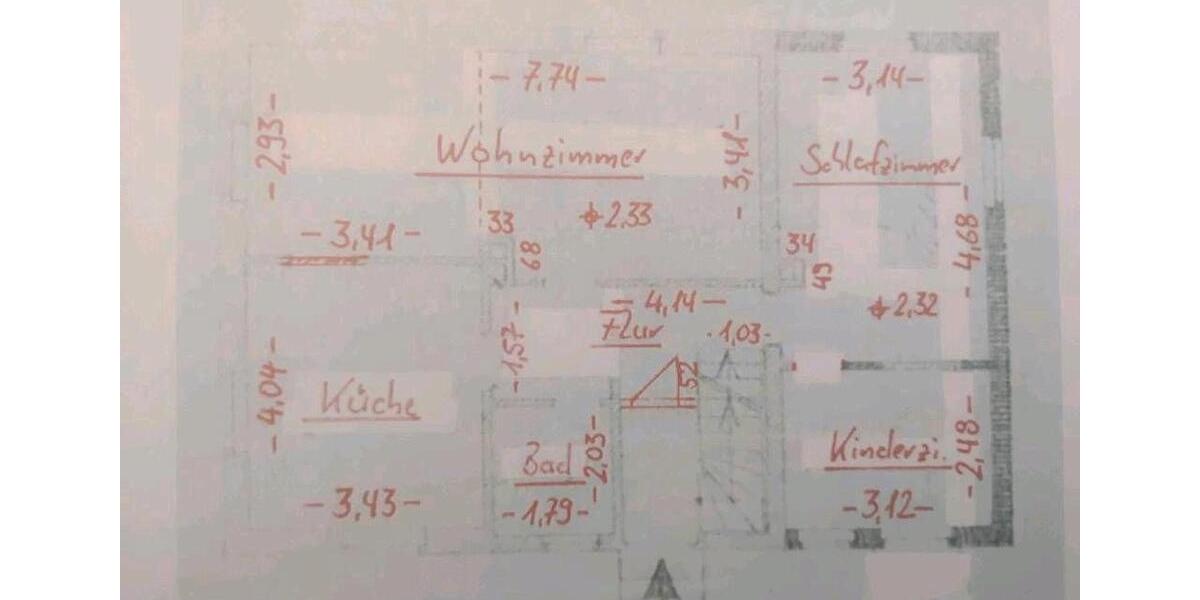 - 7,74 -
- 3,14 -
- 2,93 -
Wohnzimmer
- 3,41 -
Schlafzimmer
2,33
- 3,41 -
33
68
34
49
- 4,68 -
- 4,14 -
2,32
Flur
· 1,03 -
- 1,57 -
52
- 4,04 -
Küche
Bad
- 2,03 -
Kinderzi.
- 2,48 -
- 3,43 -
- 1,79 -
- 3,12 -